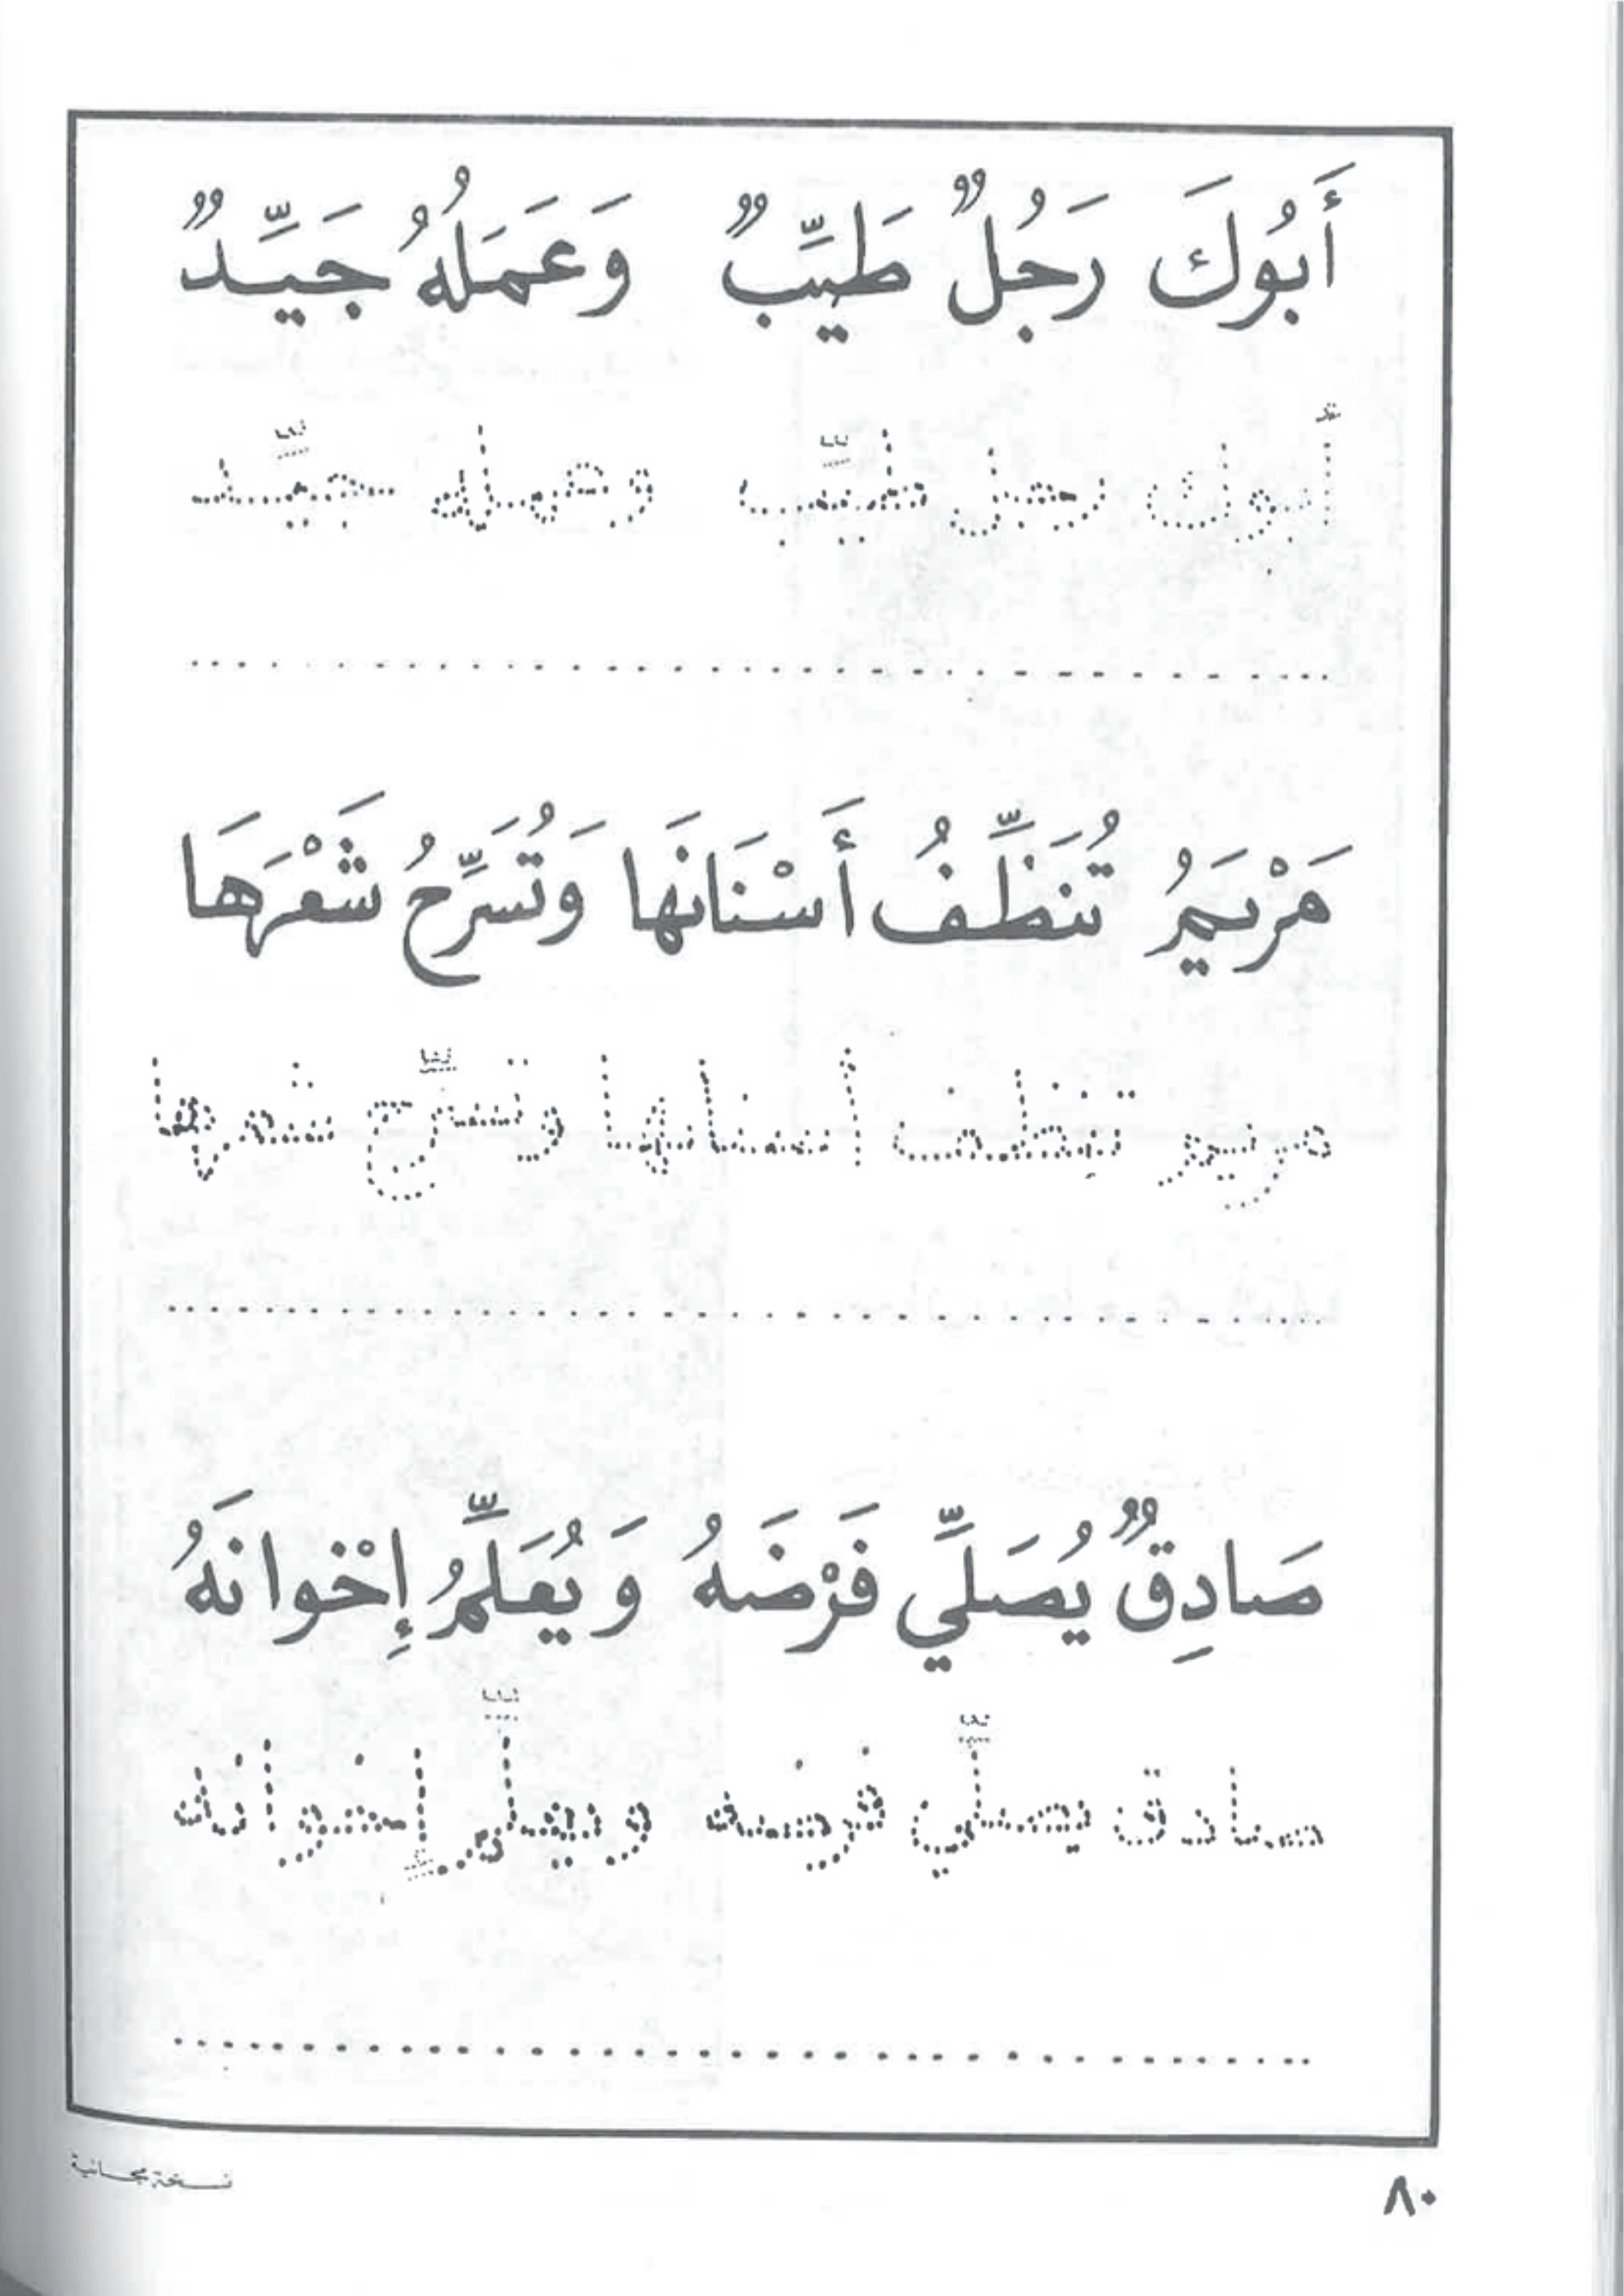 أَبُوكَ رَجُلٌ طَيِّبٌ وَعَمَلُهُ جَيِّدٌ
أبوك رجل طيّب وعمله جيّد
مَرْيَمُ تُنَظِّفُ أَسْنَانَها وَتُسَرِّحُ شَعْرَهَا
مريم تنظف أسنانها وتسرّح شعرها
صَادِقٌ يُصَلِّي فَرْضَهُ وَيُعَلِّمُ إِخْوانَهُ
صادق يصلّي فرضه ويعلّم إخوانه
نسخة مجانية
٨٠